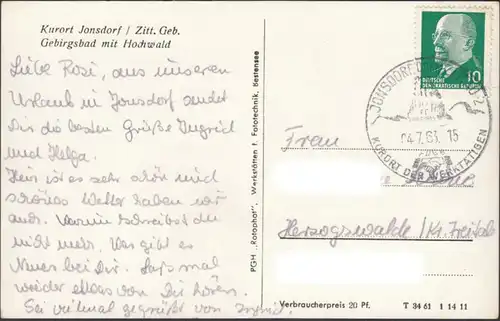 Kurort Jonsdorf / Zitt. Geb.
Gebirgsbad mit Hochwald
Liebe Rosi, aus unseren
Urlaub in Jonsdorf sendet
Dir die besten Grüße Ingrid
und Helga.
Hier ist es sehr schön und
schönes Wetter haben wir
auch. Warum schreibst du
nicht mehr. Was gibt es
Neues bei Dir. Laß mal
wieder etwas von Dir hören.
Sei vielmal gegrüßt von Ingrid.
PGH „Rotophot“, Werkstätten f. Fototechnik, Bestensee
10
DEUTSCHE
DEMOKRATISCHE REPUBLIK
JONSDORF
04.7.63. 15
KURORT DER WERKTÄTIGEN
Frau
Herzogswalde / Kr. Freital
Verbraucherpreis 20 Pf. T 34 61 1 14 11